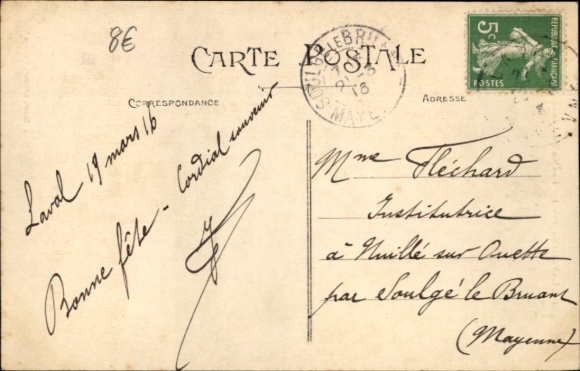 8€
CARTE POSTALE
CORRESPONDANCE
ADRESSE
SOULGÉ-LE-BRUANT
MAYENNE
5c
REPUBLIQUE FRANÇAISE
POSTES
Laval 19 mars 16
Bonne fête - Cordial souvenir
Mme Fléchard
Institutrice
à Nuillé sur Ouette
par Soulgé le Bruant
(Mayenne)